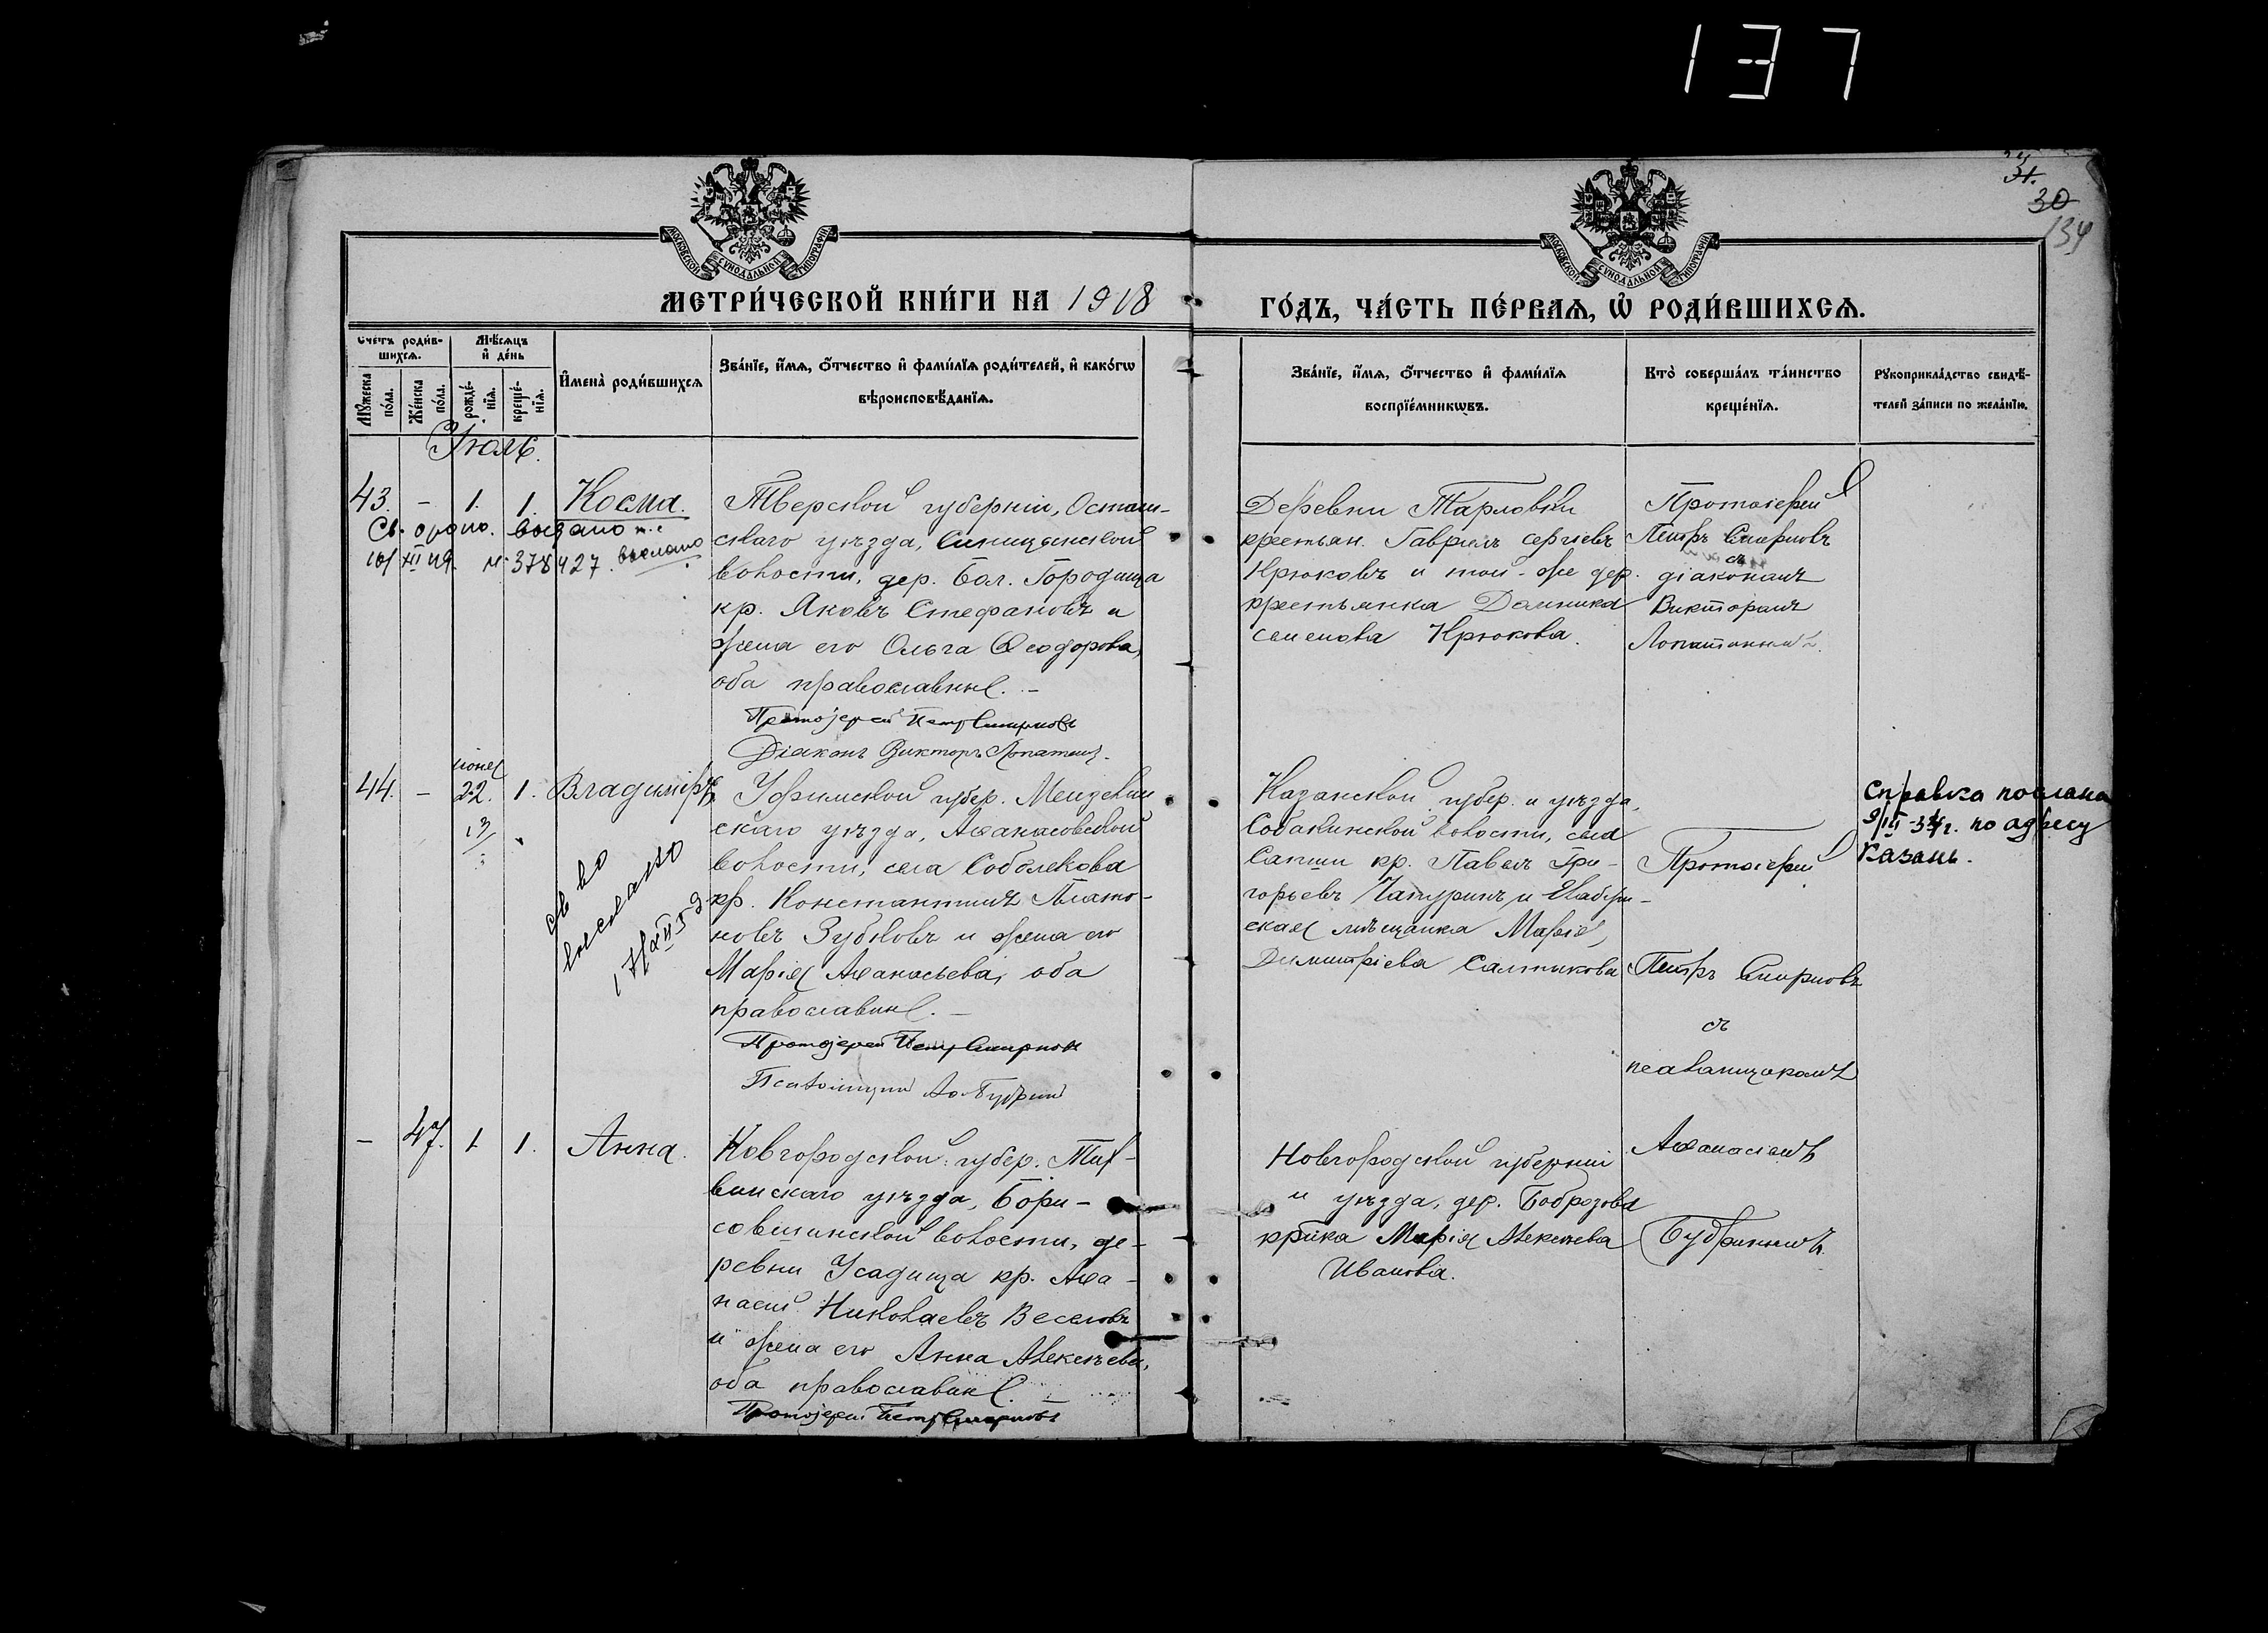 137
31.
30
134
МОСКОВСКОЙ СУНОДАЛЬНОЙ ТИПОГРАФІИ
МОСКОВСКОЙ СУНОДАЛЬНОЙ ТИПОГРАФІИ
МЕТРИ́ЧЕСКОЙ КНИ́ГИ НА 1918
ГО́ДЪ, ЧА́СТЬ ПЕ́РВАЯ, Ѡ҆ РОДИ́ВШИХСЯ.
Сче́тъ роди́в-
шихся.
Мѣ́сяцъ
и҆ де́нь
Му́жеска
по́ла.
Же́нска
по́ла.
рожде́-
нїя.
креще́-
нїя.
И҆мена̀ роди́вшихся
Зва́нїе, и҆́мя, о҆́тчество и҆ фами́лїя роди́телей, и҆ како́гѡ
вѣроисповѣ́данїя.
Зва́нїе, и҆́мя, о҆́тчество и҆ фами́лїя
воспрїе́мникѡвъ.
Кто̀ соверша́лъ та́инство
креще́нїя.
Рукоприкла́дство свидѣ́-
телей за́писи по жела́нїю.
Іюль.
43. - 1. 1. Косма.
Св. о рожд. выдано
№ 378427. выслано
Тверской губерніи, Осташ-
скаго уѣзда, Синицынской
волости, дер. Бол. Городища
кр. Яковъ Стефановъ и
жена его Ольга Ѳеодорова,
оба православные. -
Протоіерей Петр Смирновъ
Діаконъ Викторъ Лопатинъ.
Деревни Тарловки
крестьян. Гавріилъ Сергіевъ
Крюковъ и той-же дер.
крестьянка Домника
Семенова Крюкова.
Протоіерей
Петръ Смирновъ
съ
діакономъ
Викторомъ
Лопатинымъ.
44. - іюня 22. 1. Владиміръ
св во
выслано
Уфимской губер. Мензелин
скаго уѣзда, Аѳанасовской
волости, села Соболекова
кр. Константинъ Плато-
новъ Зубковъ и жена его
Марія Аѳанасьева, оба
православные. -
Протоіерей Петр Смирнов
Казанской губер. и уѣзда,
Собакинской волости, села
кр. Павелъ Гри-
горьевъ и Елабуж-
ская мѣщанка Марія
Димитріева Салтыкова
Протоіерей
Петръ Смирновъ
съ
псаломщикомъ
Аѳанасіемъ
Справка послана
9/III-34 г. по адресу
Казань.
- 47. 1. 1. Анна.
Новгородской губер. Тих-
винскаго уѣзда, Бори-
совщинской волости, де-
ревни Усадища кр. Аѳа-
насій Николаевъ Веселовъ
и жена его Анна Алексѣева,
оба православные.
Протоіерей Петр Смирновъ
Новгородской губерніи
и уѣзда, дер.
кр-ка Марія Алексѣева
Иванова.